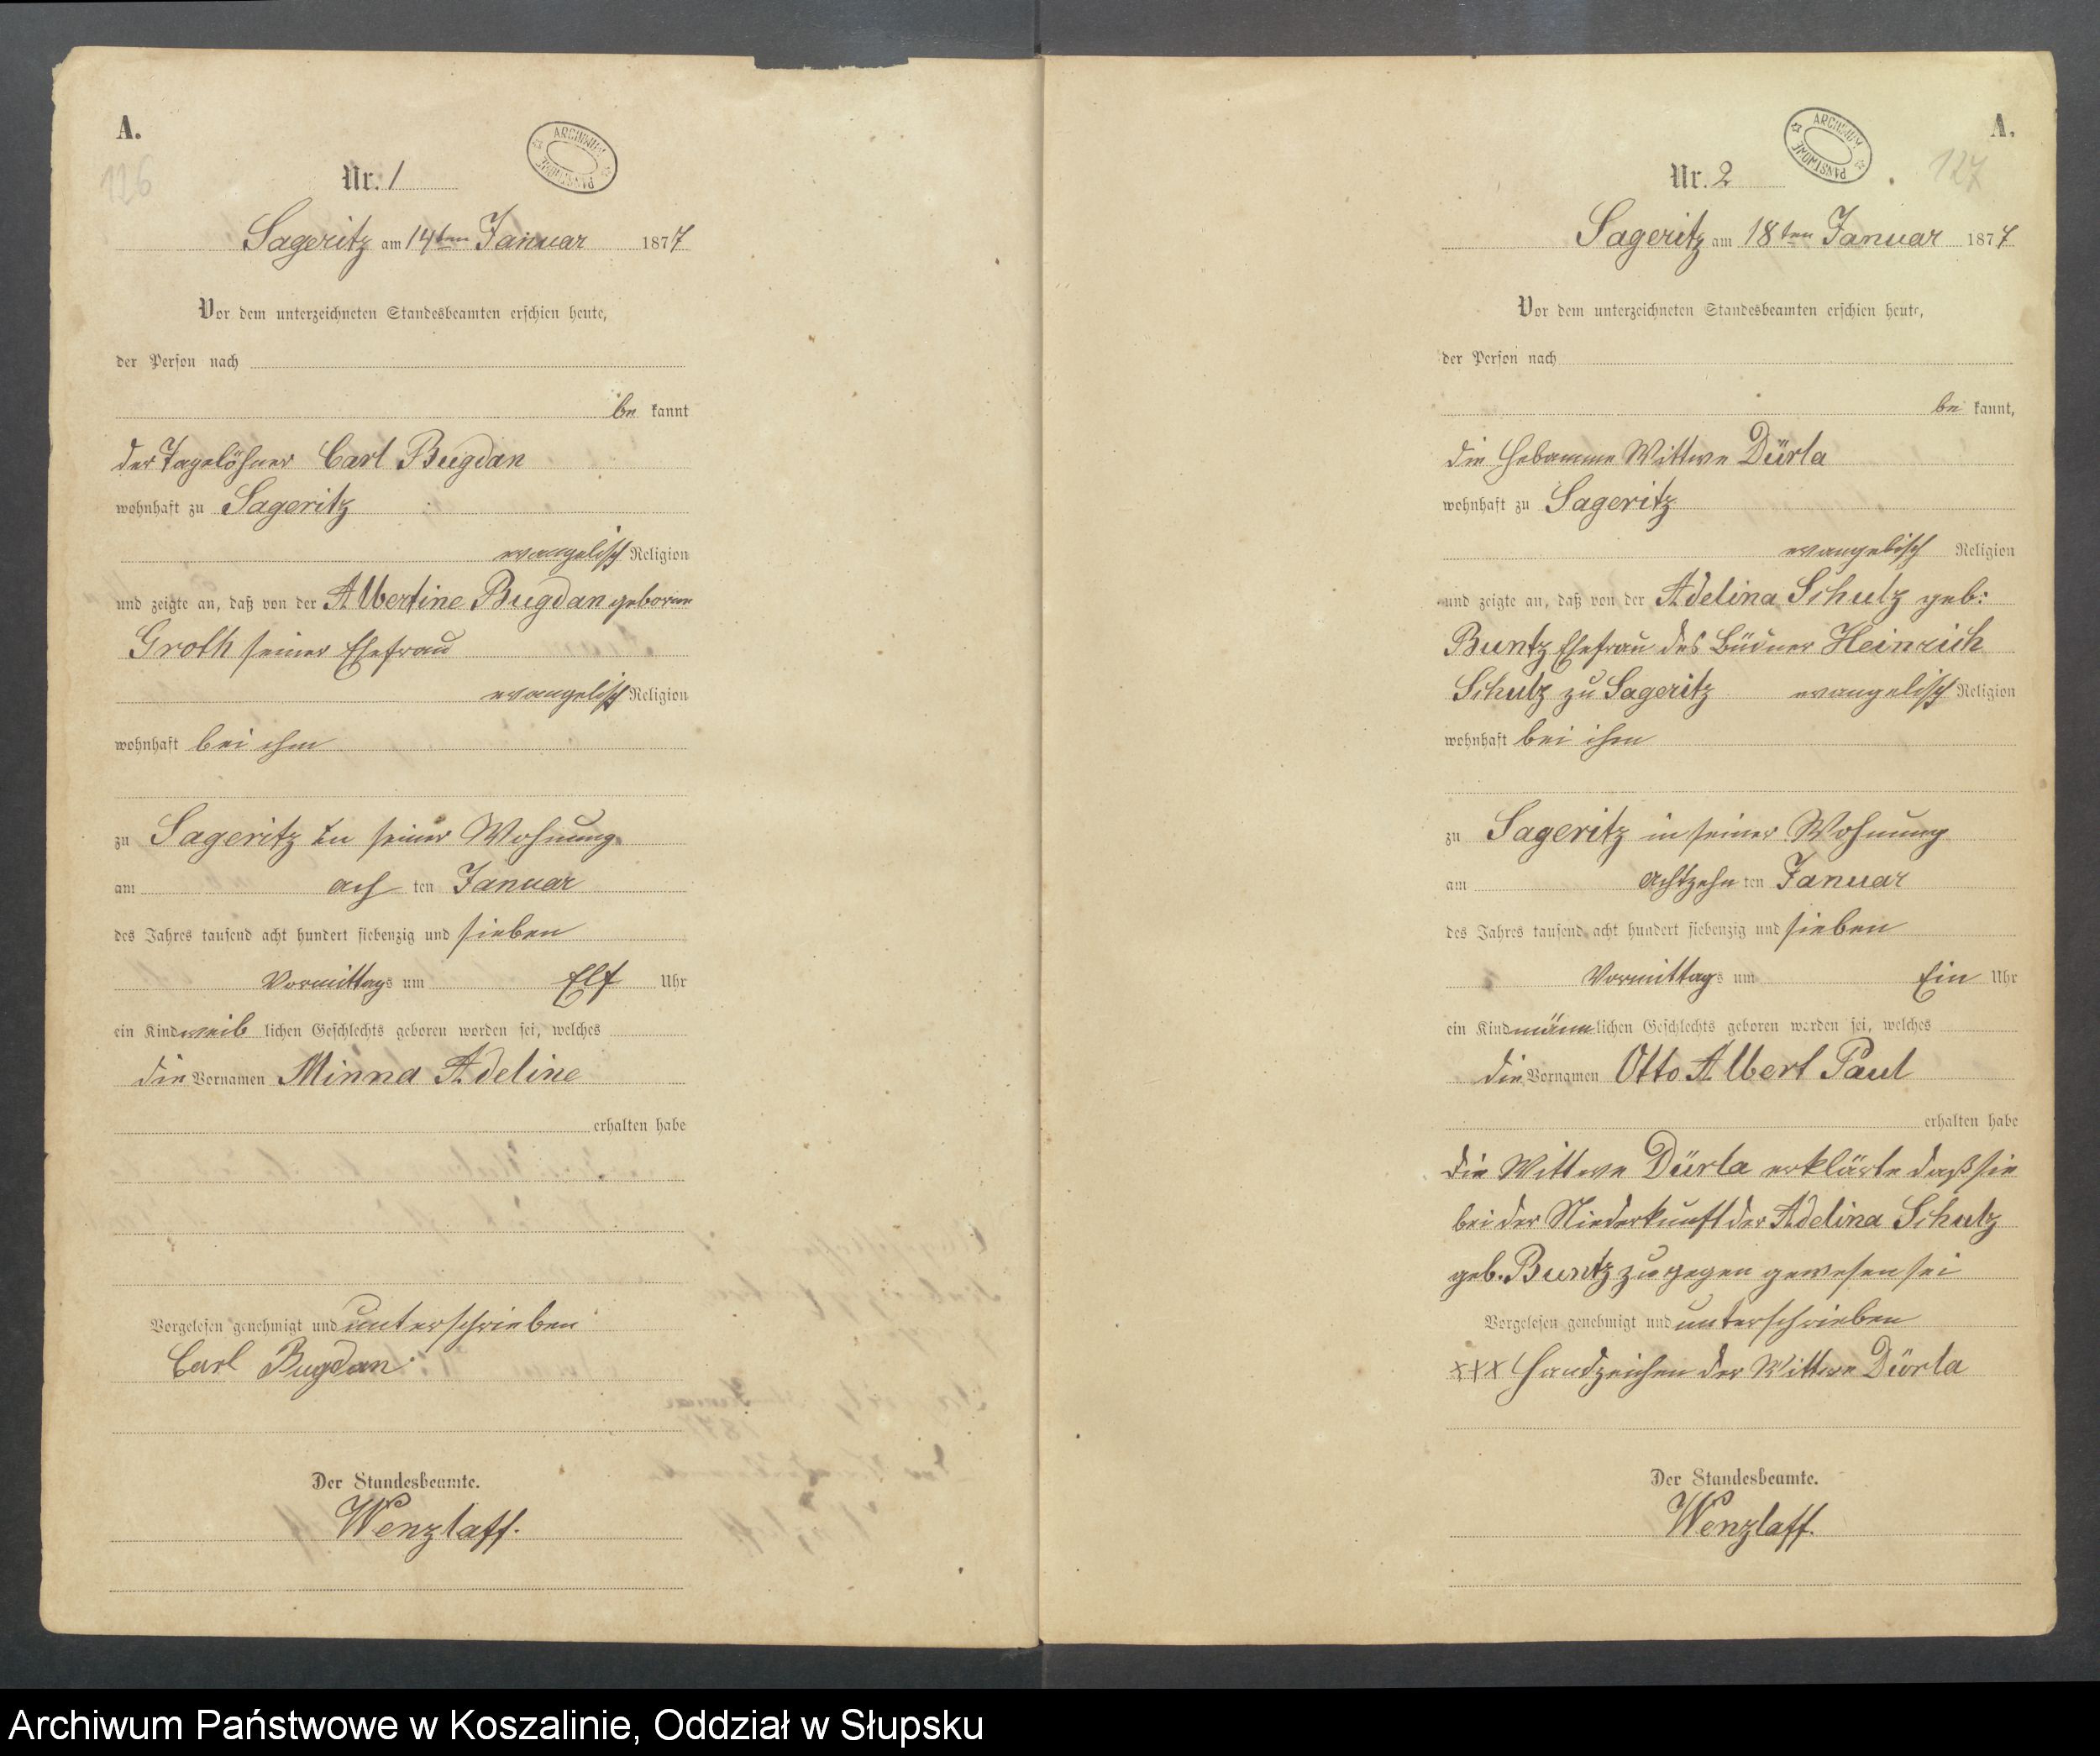 A.
126
ARCHIWUM PAŃSTWOWE
Nr. 1
Sageritz am 14ten Januar 1877
Vor dem unterzeichneten Standesbeamten erschien heute,
der Person nach
be kannt
der Tagelöhner Carl Bugdan
wohnhaft zu Sageritz
evangelisch Religion
und zeigte an, daß von der Albertine Bugdan geborne
Groth seiner Ehefrau
evangelisch Religion
wohnhaft bei ihm
zu Sageritz in seiner Wohnung
am ach ten Januar
des Jahres tausend acht hundert siebenzig und sieben
Vormittags um Elf Uhr
ein Kind weib lichen Geschlechts geboren worden sei, welches
die Vornamen Minna Adeline
erhalten habe
Vorgelesen genehmigt und unterschrieben
Carl Bugdan
Der Standesbeamte.
Wenzlaff.
A.
127
ARCHIWUM PAŃSTWOWE
Nr. 2
Sageritz am 18ten Januar 1877
Vor dem unterzeichneten Standesbeamten erschien heute,
der Person nach
be kannt,
die Hebamme Wittwe Dürla
wohnhaft zu Sageritz
evangelisch Religion
und zeigte an, daß von der Adelina Schulz geb:
Buntz Ehefrau des Büdner Heinrich
Schulz zu Sageritz evangelisch Religion
wohnhaft bei ihm
zu Sageritz in seiner Wohnung
am achtzehn ten Januar
des Jahres tausend acht hundert siebenzig und sieben
Vormittags um Ein Uhr
ein Kind männ lichen Geschlechts geboren worden sei, welches
die Vornamen Otto Albert Paul
erhalten habe
die Wittwe Dürla erklärte daß sie
bei der Niederkunft der Adelina Schulz
geb. Buntz zugegen gewesen sei
Vorgelesen genehmigt und unterschrieben
xxx Handzeichen der Wittwe Dürla
Der Standesbeamte.
Wenzlaff.
Archiwum Państwowe w Koszalinie, Oddział w Słupsku